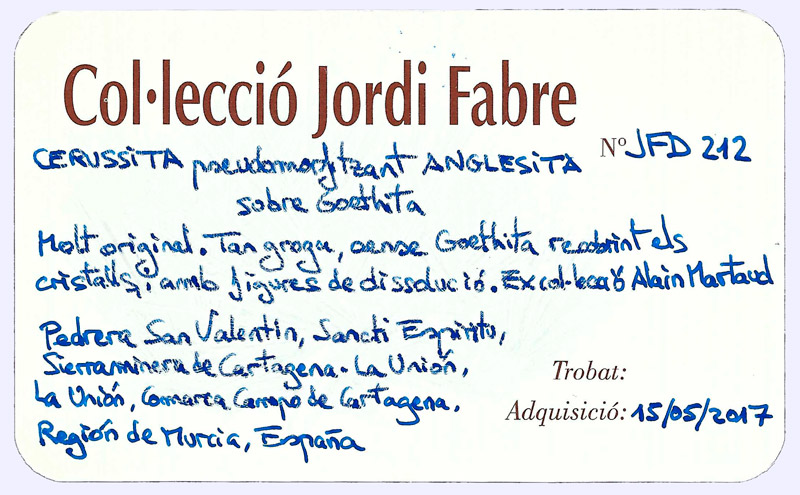 Col·lecció Jordi Fabre
Nº JFD 212
CERUSSITA pseudomorfitzant ANGLESITA
sobre Goethita
Molt original. Tan groga, sense Goethita recobrint els
cristalls, i amb figures de dissolució. Ex col·lecció Alain Martaud
Pedrera San Valentín, Sancti Espíritu,
Sierra minera de Cartagena-La Unión,
La Unión, Comarca Campo de Cartagena,
Región de Murcia, España
Trobat:
Adquisició: 15/05/2017